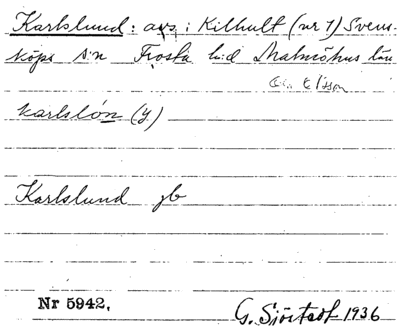 Karlslund: avs. i Kilhult (nr 1) Svens-
köps s:n Frosta h:d Malmöhus län
Elsson
karlslón (y.)
Karlslund jb
Nr 5942,
G. Sjöstedt 1936